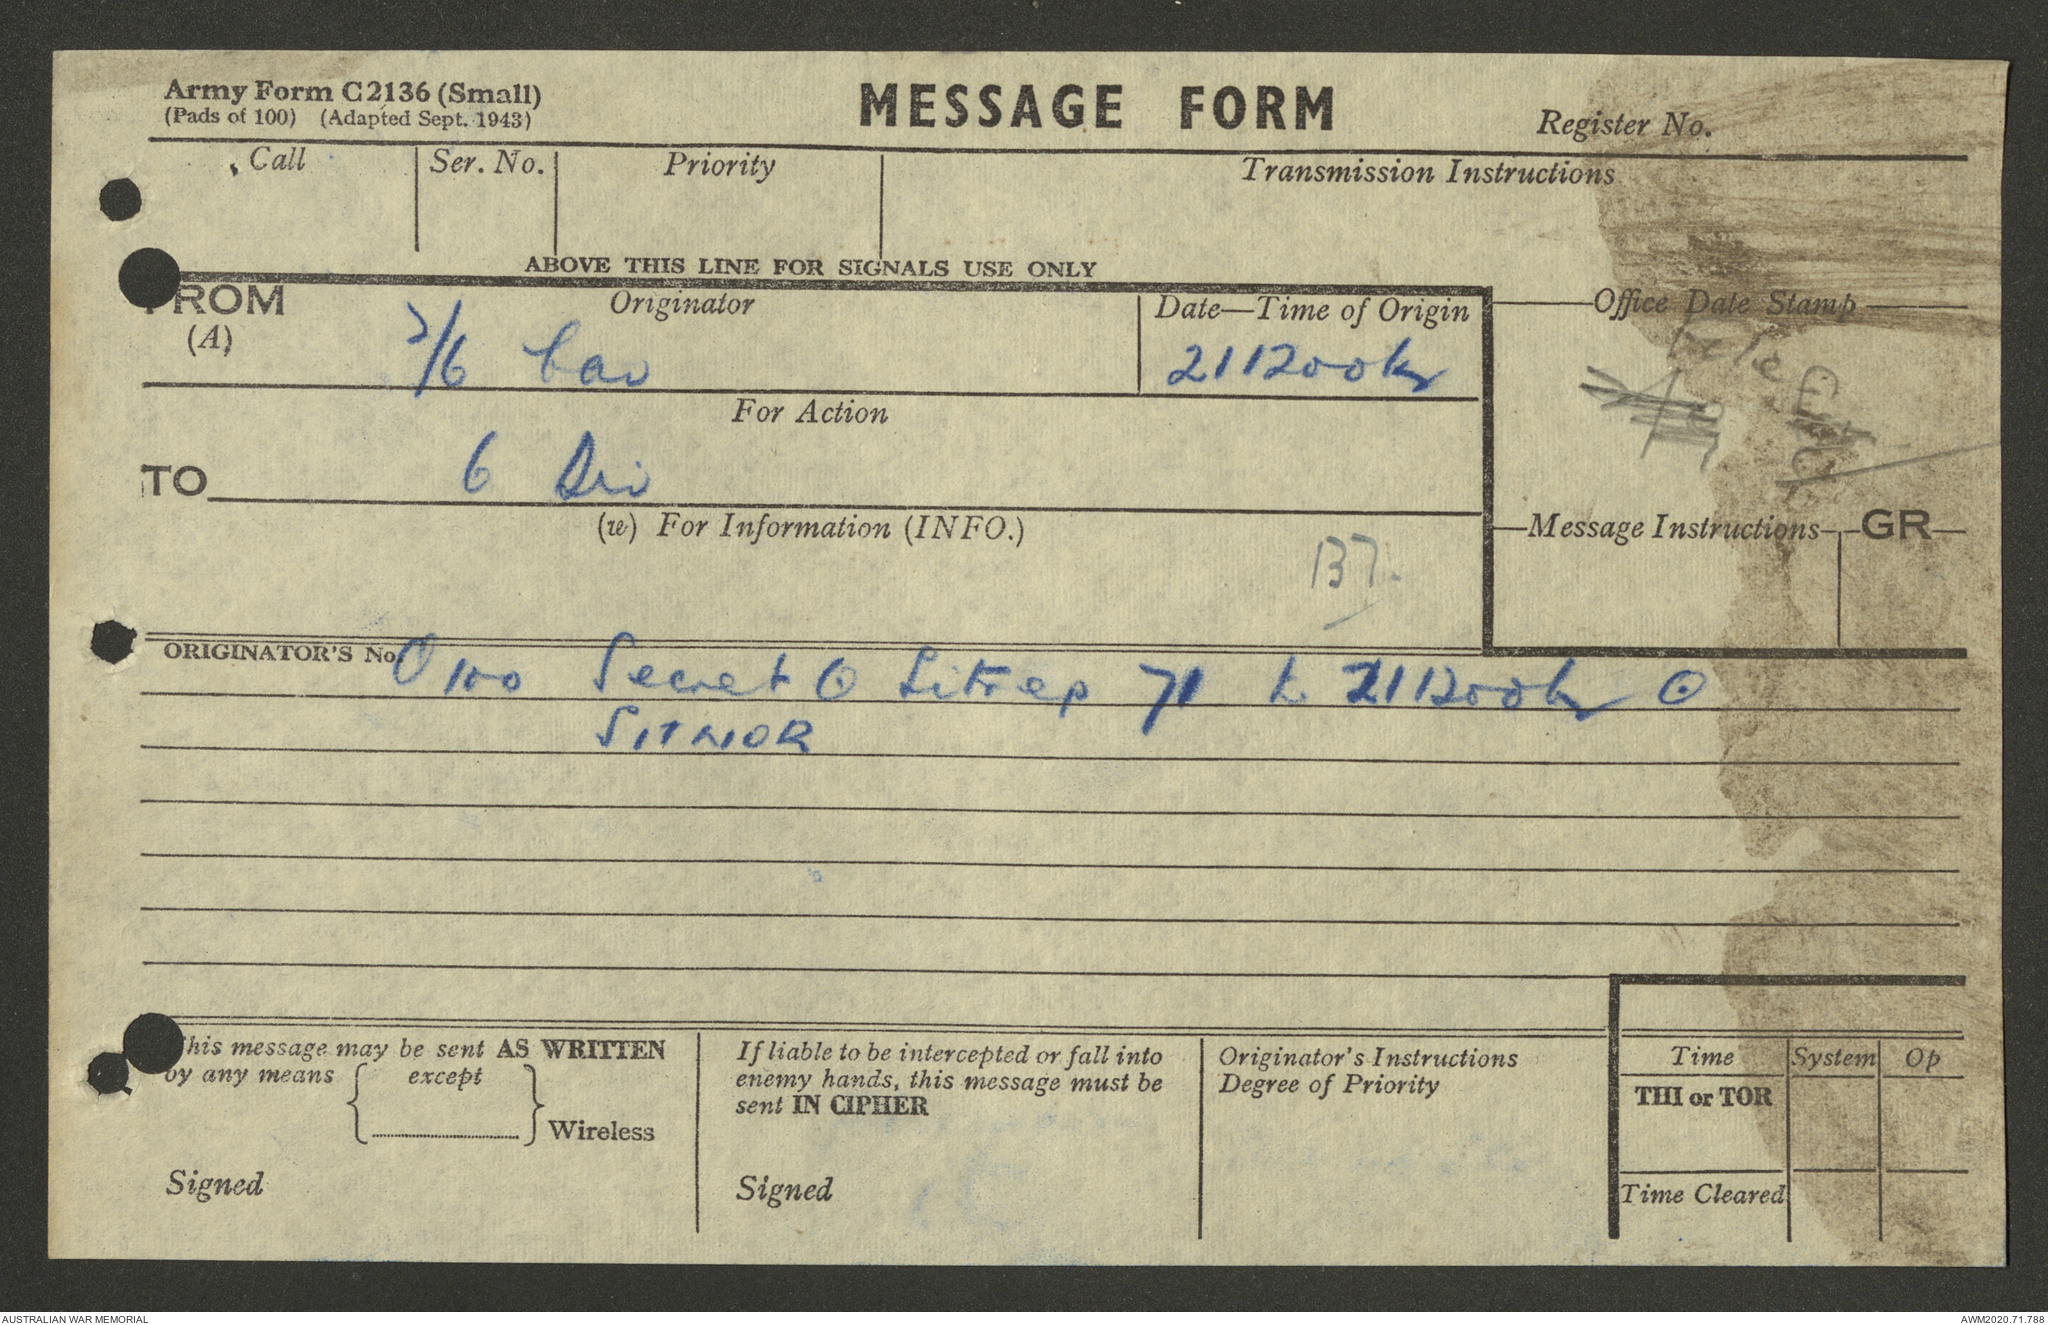 Army Form C2136 (Small)
(Pads of 100) (Adapted Sept. 1943)
MESSAGE FORM
Register No.
Call Ser. No. Priority Transmission Instructions
ABOVE THIS LINE FOR SIGNALS USE ONLY
FROM
(A)
Originator
Date—Time of Origin
Office Date Stamp
2/6 Cav
211200K
For Action
TO
6 Div
(w) For Information (INFO.)
Message Instructions GR
B7.
ORIGINATOR'S No.
O100 Secret O Sitrep 71 to 211200K O
SITNOR
This message may be sent AS WRITTEN
by any means except
Wireless
Signed
If liable to be intercepted or fall into
enemy hands, this message must be
sent IN CIPHER
Signed
Originator's Instructions
Degree of Priority
Time System Op
THI or TOR
Time Cleared
AUSTRALIAN WAR MEMORIAL
AWM2020.71.788